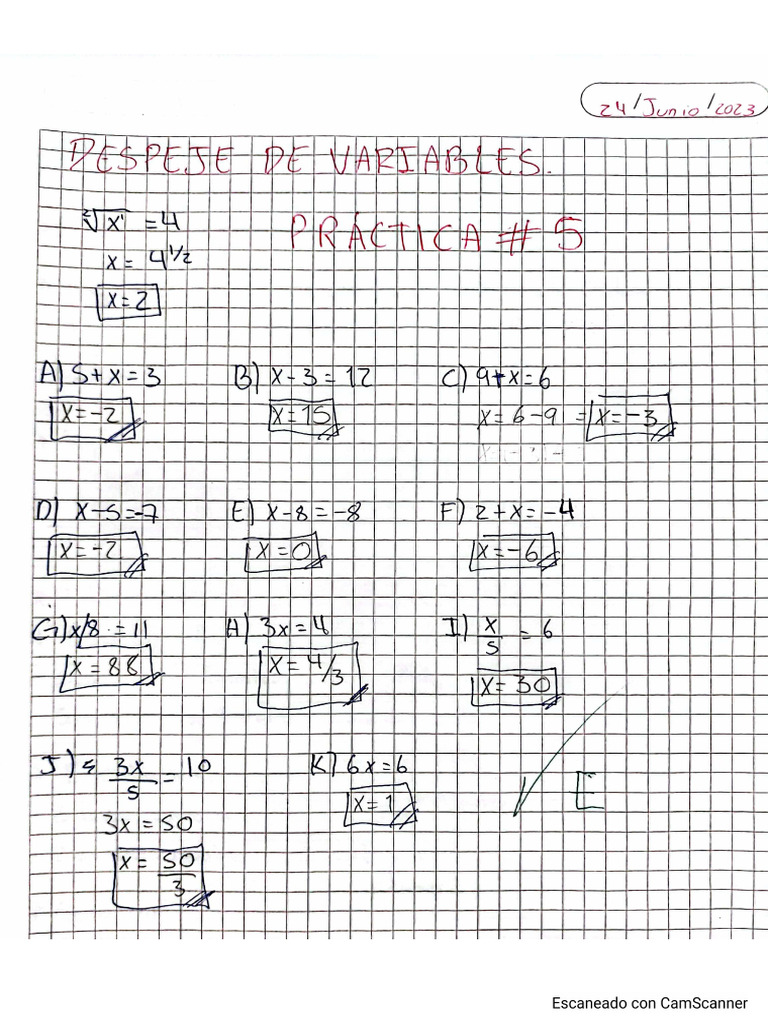 24/Junio/2023
DESPEJE DE VARIABLES.
PRÁCTICA # 5
²√x = 4
x = 4^1/2
x = 2
A) 5+x=3 B) x-3=12 C) 9+x=6
x=-2 x=15 x=6-9 = x=-3
D) x-5=-7 E) x-8=-8 F) 2+x=-4
x=-2 x=0 x=-6
G) x/8 = 11 H) 3x=4 I) x/5 = 6
x=88 x=4/3 x=30
J) 3x/5 = 10 K) 6x=6
3x=50 x=1
x=50/3
E
Escaneado con CamScanner